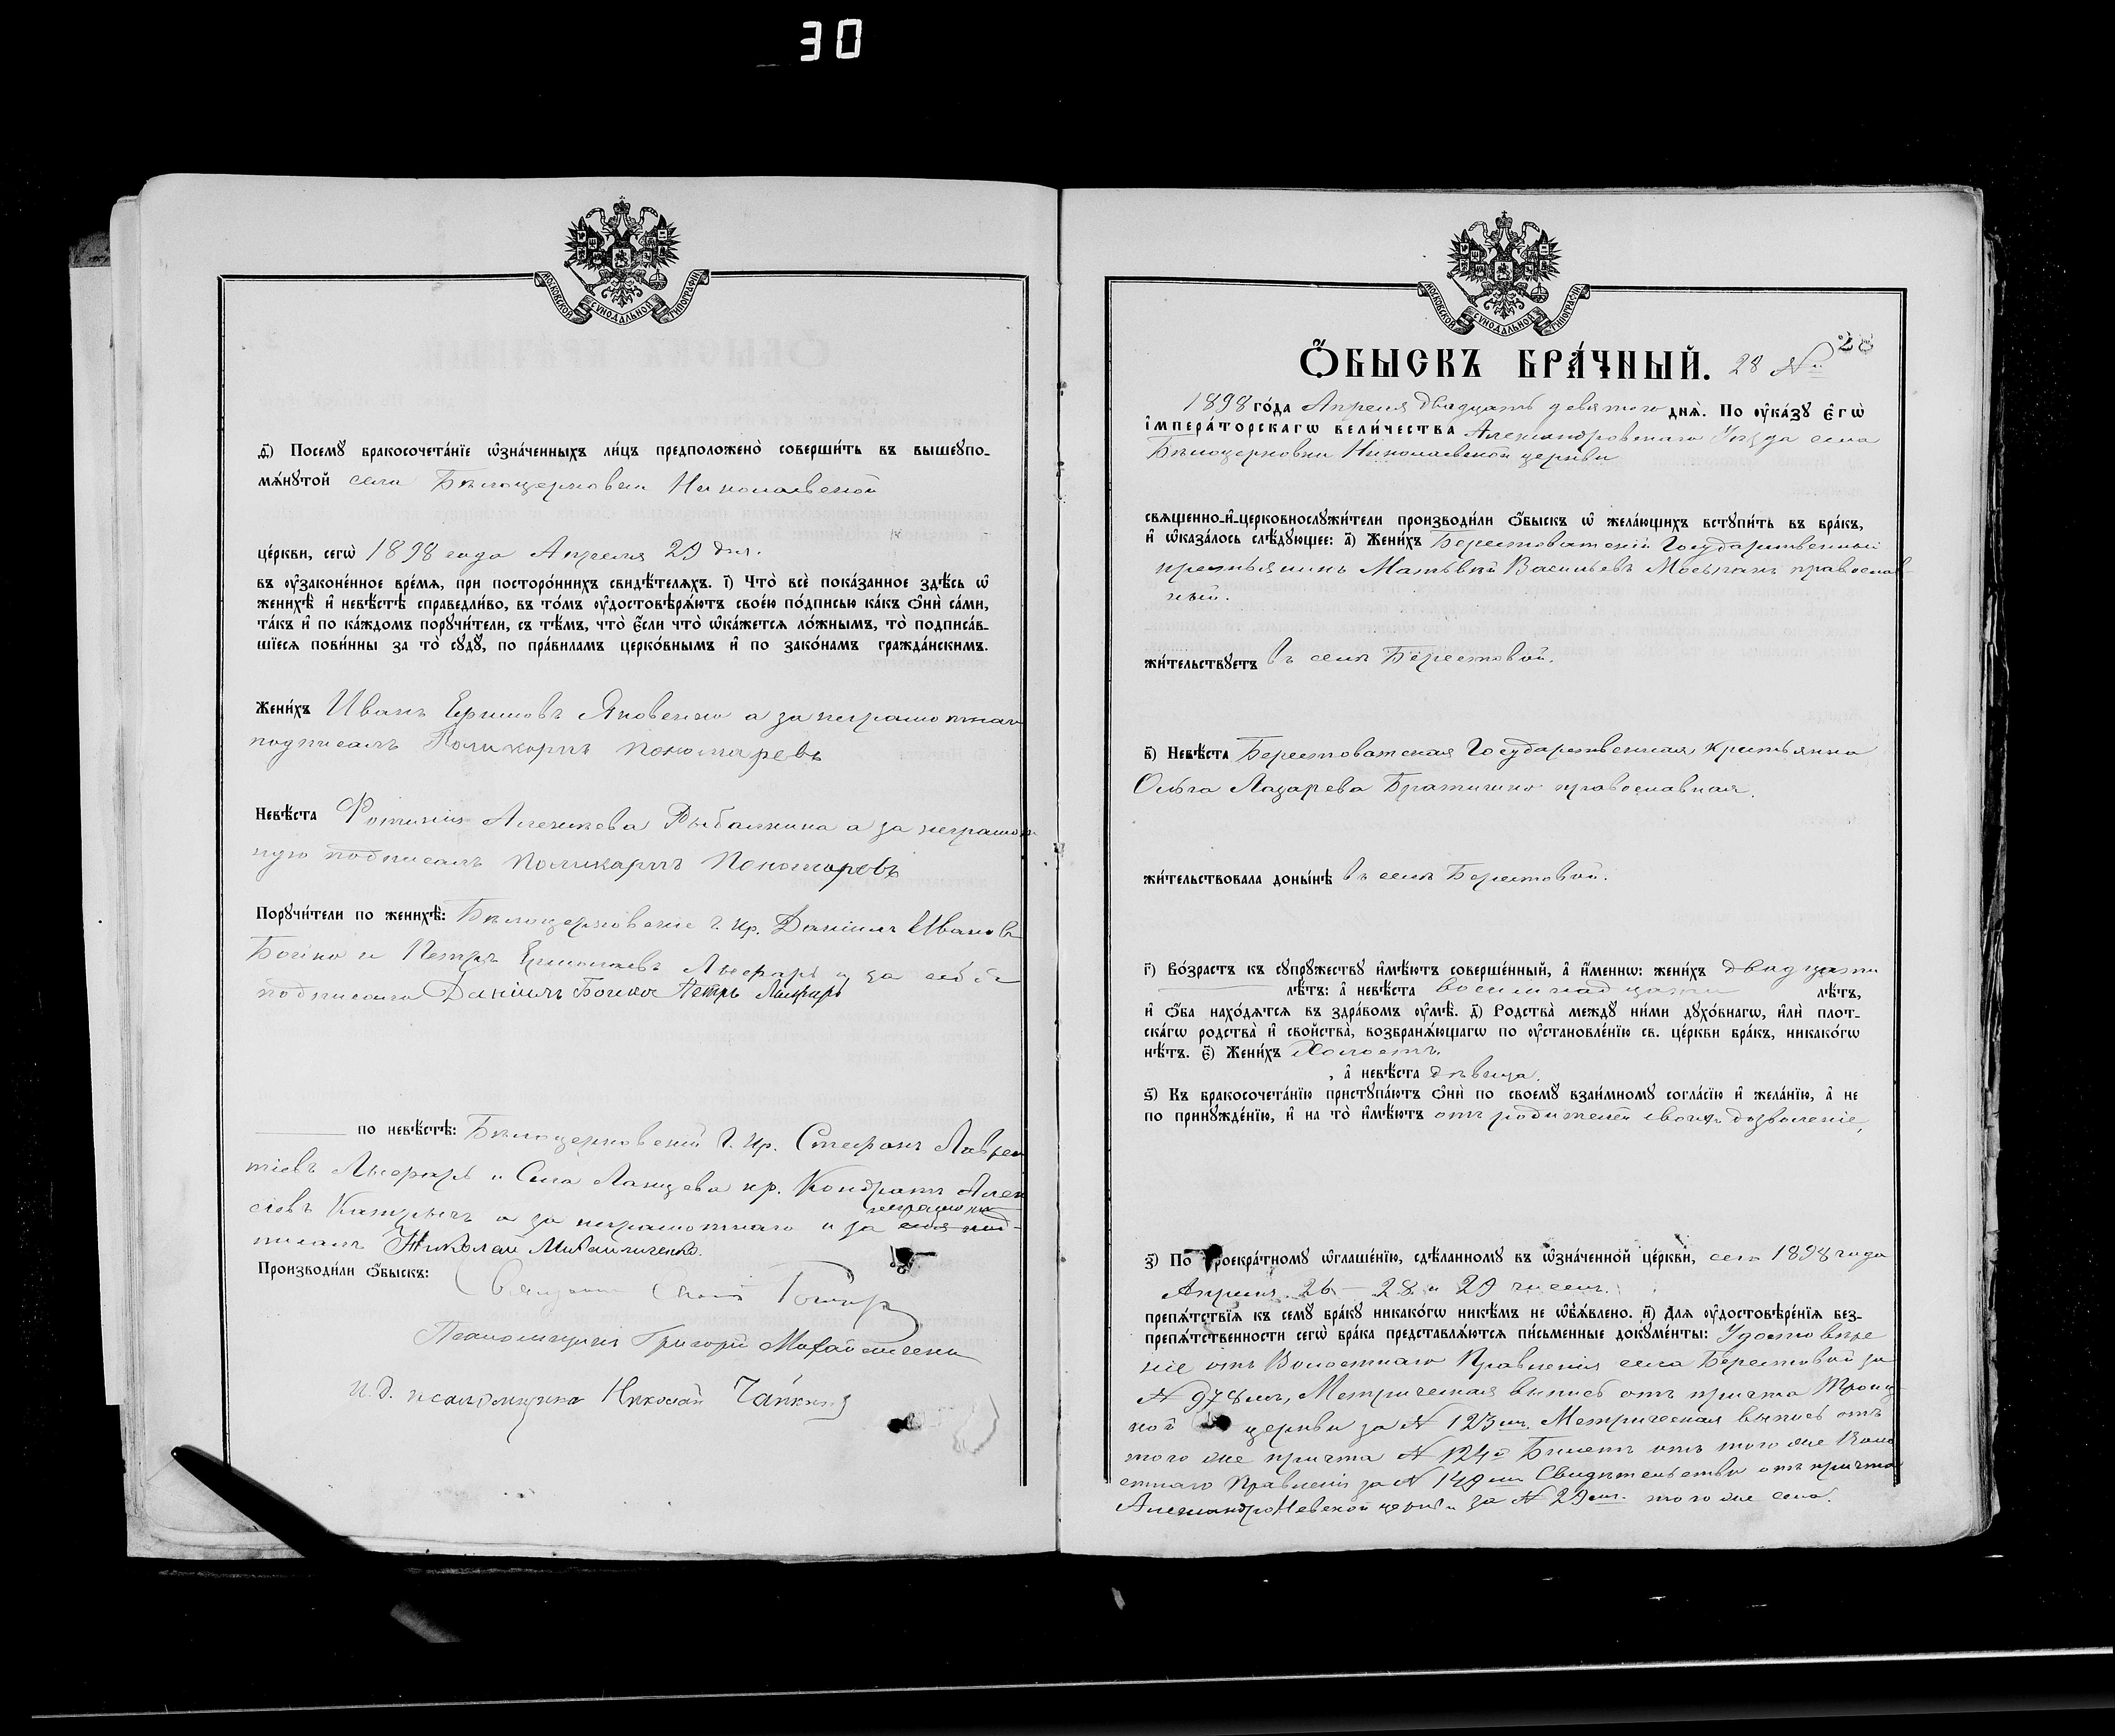 30
МОСКОВСКОЙ СѴНОДАЛЬНОЙ ТИПОГРАФІИ
ѳ҃) Посемꙋ бракосочета́нїе ѡ҆зна́ченныхъ ли́цъ предположено̀ соверши́ть въ вышеꙋпо-
мѧ́нꙋтой села Бѣлоцерковки Николаевской
це́ркви, сегѡ̀ 1898 года Апреля 29 дня.
въ ᲂу҆законе́нное вре́мѧ, при посторо́ннихъ свидѣ́телѧхъ. і҃) Что̀ всѐ пока́занное здѣ́сь ѡ҆
женихѣ̀ и҆ невѣ́стѣ справедли́во, въ то́мъ ᲂу҆достовѣрѧ́ютъ свое́ю по́дписью ка́къ ѻ҆нѝ са́ми,
та́къ и҆ по ка́ждомъ порꙋчи́тели, съ тѣ́мъ, что̀ є҆́сли что̀ ѡ҆ка́жетсѧ ло́жнымъ, то̀ подписа́в-
шїесѧ пови́нны за то̀ сꙋдꙋ̀, по пра́виламъ церко́внымъ и҆ по зако́намъ гражда́нскимъ.
Жени́хъ Иванъ Ермиловъ Яковенко а за неграмотнаго
подписалъ Поликарпъ Пономаревъ
Невѣ́ста Фотинія Алексѣева Рыбалкина а за неграмот
ную подписалъ Поликарпъ Пономаревъ
Порꙋчи́тели по женихѣ̀: Бѣлоцерковскіе Г. кр. Даніилъ Ивановъ
Бойко и Петръ Ермолаевъ Лысфарь и за себя
подписали Даніилъ Бойко Петръ
по невѣ́стѣ: Бѣлоцерковскій Г. кр. Стефанъ Лаврен
тіевъ и Села кр. Кондратъ Алек
сѣевъ а за неграмотнаго и за неграмотн
писалъ Николай Михайличенко.
Производи́ли ѻ҆́быскъ: Священникъ
Псаломщикъ Григорій Михайличенко
и. д. псаломщика Николай Чапкинъ
МОСКОВСКОЙ СѴНОДАЛЬНОЙ ТИПОГРАФІИ
28
Ѻ҆́БЫСКЪ БРА́ЧНЫЙ. 28 №
1898 го́да Апреля двадцать девятого днѧ̀. По ᲂу҆ка́зꙋ є҆гѡ̀
і҆мпера́торскагѡ вели́чества Александровскаго Уѣзда села
Бѣлоцерковки Николаевской церкви
свѧще́нно-и҆-церковнослꙋжи́тели производи́ли ѻ҆́быскъ ѡ҆ жела́ющихъ встꙋпи́ть въ бра́къ,
и҆ ѡ҆каза́лось слѣ́дꙋющее: а҃) Жени́хъ Берестоватскій Государственный
крестьянинъ Матвѣй Васильевъ Мосьпанъ православ-
ный.
жи́тельствꙋетъ въ селѣ Берестовой.
в҃) Невѣ́ста Берестоватская Государственная крестьянка
Ольга Лазарева Братишко православная.
жи́тельствовала доны́нѣ въ селѣ Берестовой.
г҃) Во́зрастъ къ сꙋпрꙋ́жествꙋ и҆мѣ́ютъ соверше́нный, а҆ и҆́меннѡ: жени́хъ двадцати
лѣ́тъ: а҆ невѣ́ста восемнадцати лѣ́тъ,
и҆ ѻ҆́ба нахо́дѧтсѧ въ здра́вомъ ᲂу҆мѣ̀. д҃) Родства̀ междꙋ̀ ни́ми дꙋхо́внагѡ, и҆лѝ плот-
ска́гѡ родства̀ и҆ сво́йства̀, возбранѧ́ющагѡ по ᲂу҆становле́нїю св. це́ркви бра́къ, никако́гѡ
нѣ́тъ. є҃) Жени́хъ Холостъ.
, а҆ невѣ́ста дѣвица.
ѕ҃) Къ бракосочета́нїю пристꙋпа́ютъ ѻ҆нѝ по своемꙋ̀ взаи́мномꙋ согла́сїю и҆ жела́нїю, а҆ не
по принꙋжде́нїю, и҆ на то̀ и҆мѣ́ютъ отъ родителей своихъ дозволеніе,
з҃) По троекра́тномꙋ ѡ҆глаше́нїю, сдѣ́ланномꙋ въ ѡ҆зна́ченной це́ркви, сего 1898 года
Апреля 26 — 28 и 29 чиселъ.
препѧ́тствїѧ къ семꙋ̀ бра́кꙋ никако́гѡ никѣ́мъ не ѡ҆б̾ѧ́влено. и҃) Длѧ̀ ᲂу҆достовѣре́нїѧ без-
препѧ́тственности сегѡ̀ бра́ка представлѧ́ютсѧ пи́сьменные докꙋме́нты: Удостовѣре
ніе отъ Волостнаго Правленія села Берестовой за
№ 978мъ, Метрическая выпись отъ причта Троиц
кой церкви за № 123мъ. Метрическая выпись отъ
того же причта № 124й Билетъ отъ того же Воло
стнаго Правленія за № 149мъ Свидѣтельство отъ причта
Александро Невской церкви за № 29мъ. того же села.